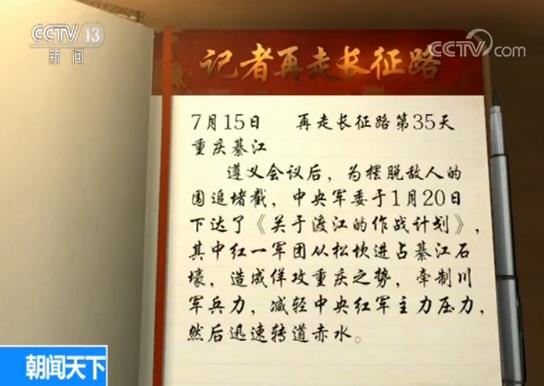 CCTV 13
新闻
CCTV.com
记者再走长征路
7月15日 再走长征路第35天
重庆綦江
遵义会议后，为摆脱敌人的
围追堵截，中央军委于1月20日
下达了《关于渡江的作战计划》，
其中红一军团从松坎进占綦江石
壕，造成佯攻重庆之势，牵制川
军兵力，减轻中央红军主力压力，
然后迅速转道赤水。
朝闻天下